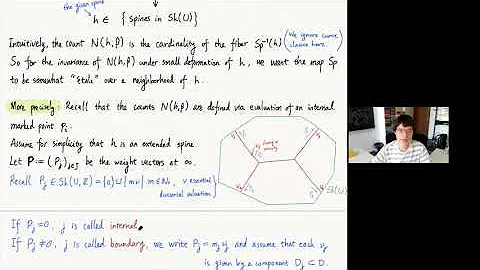 the given spine
h ∈ { spines in Sk(U) }
Intuitively, the count N(h,β) is the cardinality of the fiber Sp⁻¹(h) (We ignore curve classes here.)
So for the invariance of N(h,β) under small deformation of h, we want the map Sp
to be somewhat "étale" over a neighborhood of h.
More precisely: Recall that the counts N(h,β) are defined via evaluation of an internal
marked point pᵢ.
Assume for simplicity that h is an extended spine.
Let P := (Pⱼ)ⱼ∈J be the weight vectors at ∞.
Recall Pⱼ ∈ Sk(U,ℤ) = {0} ⊔ { mν | m ∈ ℕ>0, ν essential
divisorial valuation }
Sk(U)
If Pⱼ = 0, j is called internal.
If Pⱼ ≠ 0, j is called boundary, we write Pⱼ = mⱼνⱼ and assume that each νⱼ
is given by a component Dⱼ ⊂ D.